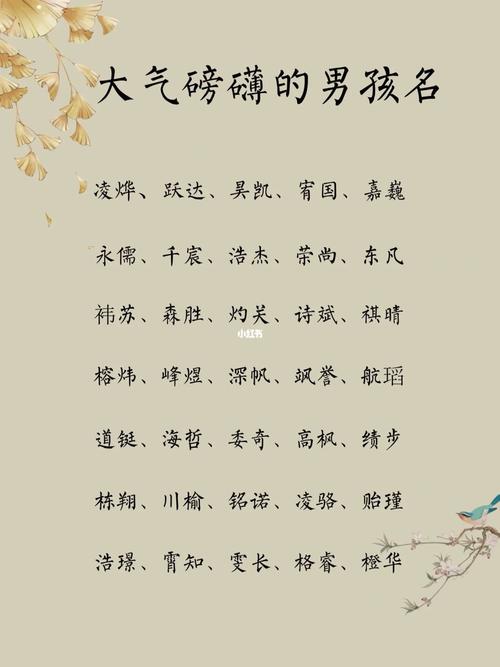 大气磅礴的男孩名
凌烨、跃达、昊凯、宥国、嘉巍
永儒、千宸、浩杰、荣尚、东凡
祎苏、森胜、灼关、诗斌、祺晴
小红书
榕炜、峰煜、深帆、飒誉、航瑫
道铤、海哲、委奇、高枫、绩步
栋翔、川榆、铭诺、凌骆、贻瑾
浩璟、霄知、雯长、格睿、橙华